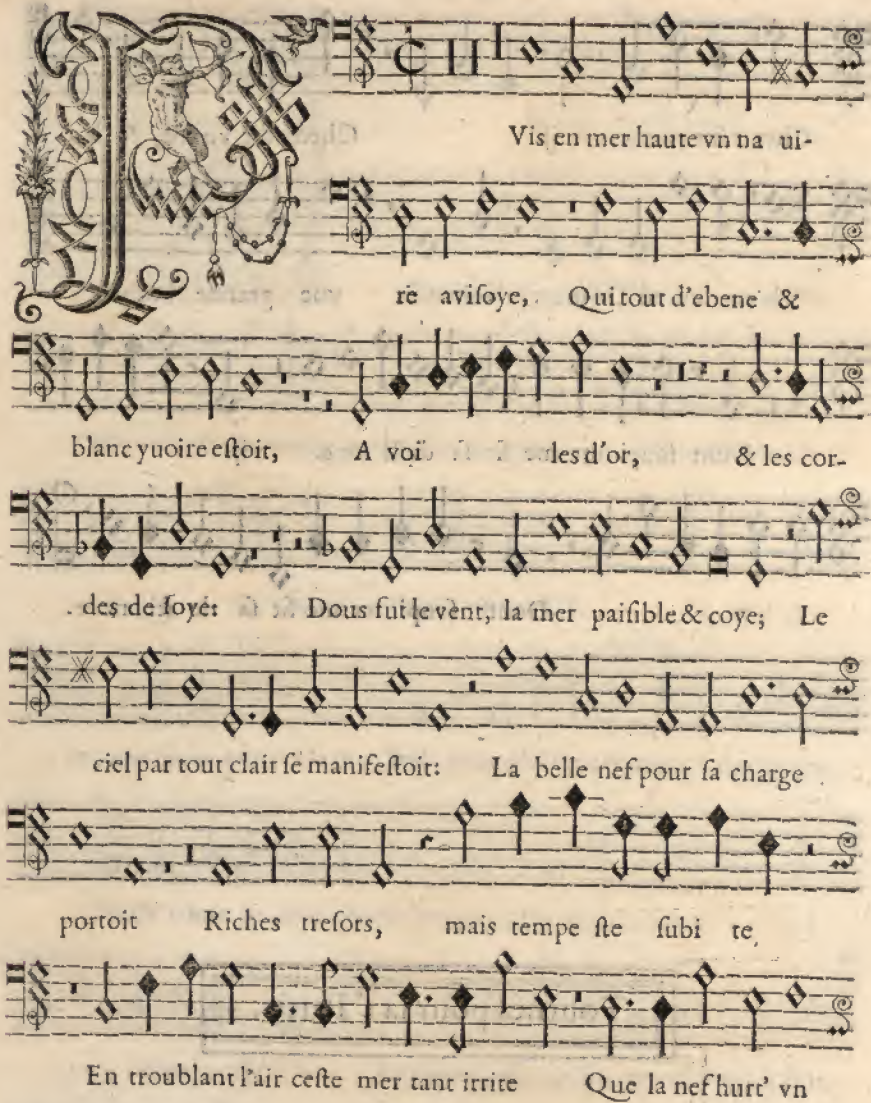 Vis en mer haute vn na ui-
re aviſoye, Qui tout d'ebene &
blanc yuoire eſtoit, A voi les d'or, & les cor-
des de ſoye: Dous fut le vent, la mer paiſible & coye; Le
ciel par tout clair ſe manifeſtoit: La belle nef pour ſa charge
portoit Riches treſors, mais tempe ſte ſubi te
En troublant l'air ceſte mer tant irrite Que la nef hurt' vn